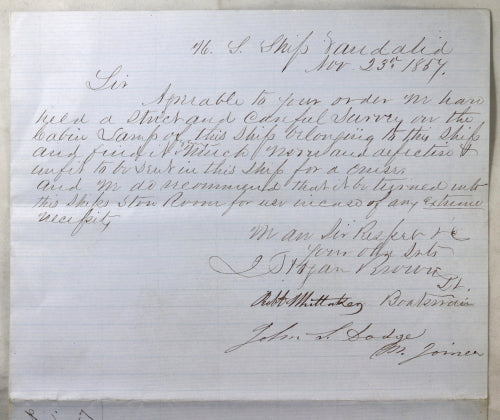 U. S. Ship Vandalia
Nov 23rd 1857.
Sir
Agreable to your order We have
held a strict and Careful Survey on the
Cabin Lamp of this Ship belonging to this Ship
and find it Much Worn and defective &
unfit to be sent in this Ship for a cruise.
and We do recommend that it be turned into
this Ships Store Room for use incase of any Extreme
necessity
We are Sir Respect &c
Your Obt Svts
Brown
Lt.
Robt Whittaker Boatswain
John S. Dodge
Joiner